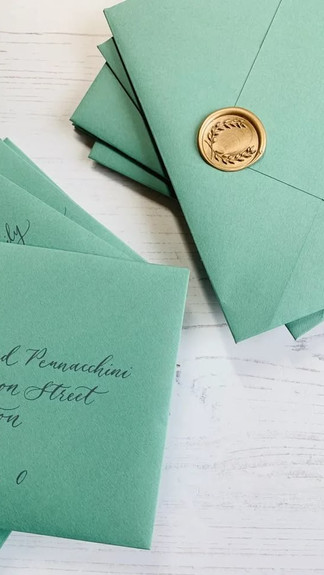 ily
d Pennacchini
on Street
on
0